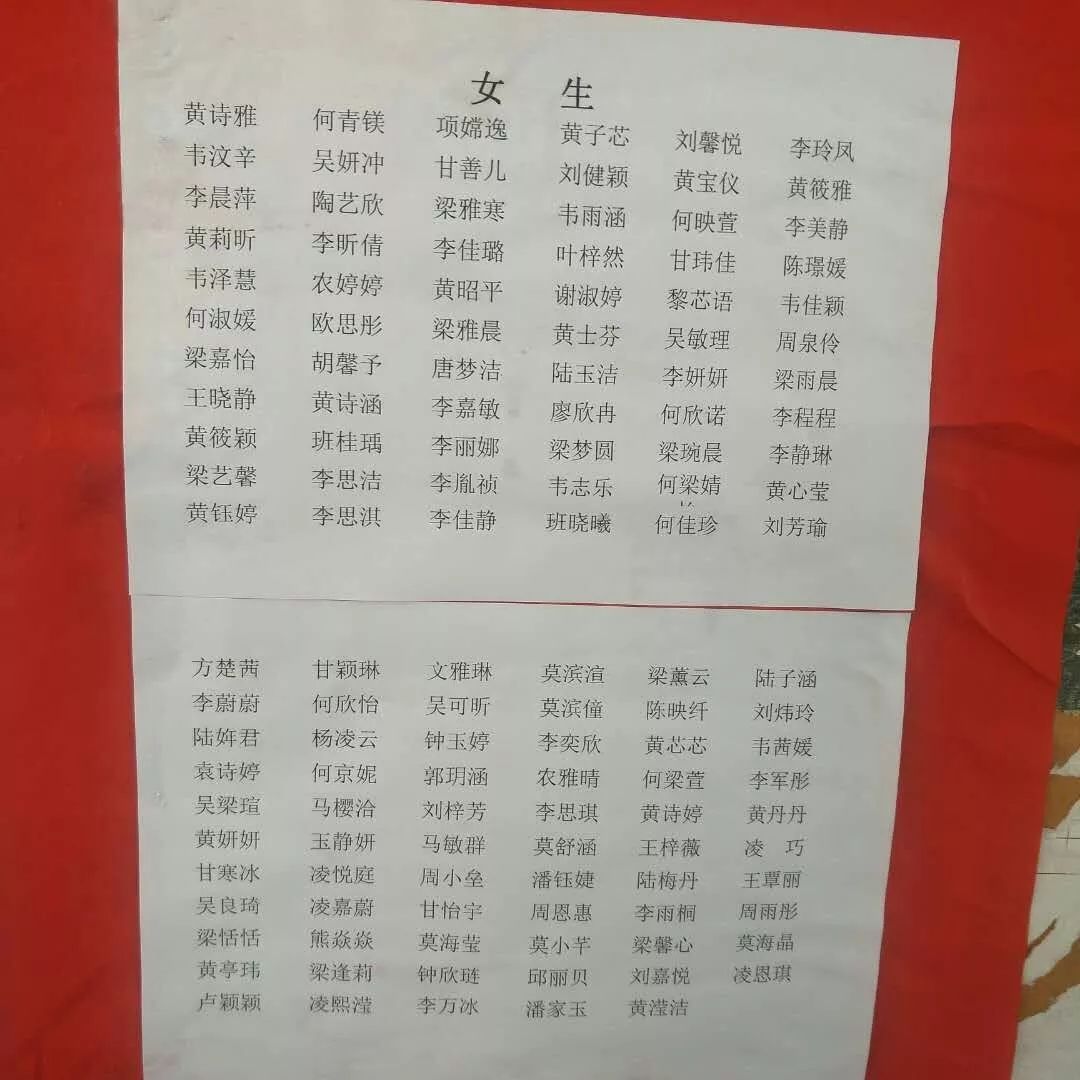 女 生
黄诗雅 何青镁 项嫦逸 黄子芯 刘馨悦 李玲凤
韦汶辛 吴妍冲 甘善儿 刘健颖 黄宝仪 黄筱雅
李晨萍 陶艺欣 梁雅寒 韦雨涵 何映萱 李美静
黄莉昕 李昕倩 李佳璐 叶梓然 甘玮佳 陈璟媛
韦泽慧 农婷婷 黄昭平 谢淑婷 黎芯语 韦佳颖
何淑媛 欧思彤 梁雅晨 黄士芬 吴敏理 周泉伶
梁嘉怡 胡馨予 唐梦洁 陆玉洁 李妍妍 梁雨晨
王晓静 黄诗涵 李嘉敏 廖欣冉 何欣诺 李程程
黄筱颖 班桂瑀 李丽娜 梁梦圆 梁琬晨 李静琳
梁艺馨 李思洁 李胤祯 韦志乐 何梁婧 黄心莹
黄钰婷 李思淇 李佳静 班晓曦 何佳珍 刘芳瑜
方楚茜 甘颖琳 文雅琳 莫滨渲 梁薰云 陆子涵
李蔚蔚 何欣怡 吴可昕 莫滨僮 陈映纤 刘炜玲
陆姩君 杨凌云 钟玉婷 李奕欣 黄芯芯 韦茜媛
袁诗婷 何京妮 郭玥涵 农雅晴 何梁萱 李军彤
吴梁瑄 马樱洽 刘梓芳 李思琪 黄诗婷 黄丹丹
黄妍妍 玉静妍 马敏群 莫舒涵 王梓薇 凌 巧
甘寒冰 凌悦庭 周小垒 潘钰婕 陆梅丹 王覃丽
吴良琦 凌嘉蔚 甘怡宇 周恩惠 李雨桐 周雨彤
梁恬恬 熊焱焱 莫海莹 莫小芊 梁馨心 莫海晶
黄亭玮 梁逢莉 钟欣琏 邱丽贝 刘嘉悦 凌恩琪
卢颖颖 凌熙滢 李万冰 潘家玉 黄滢洁